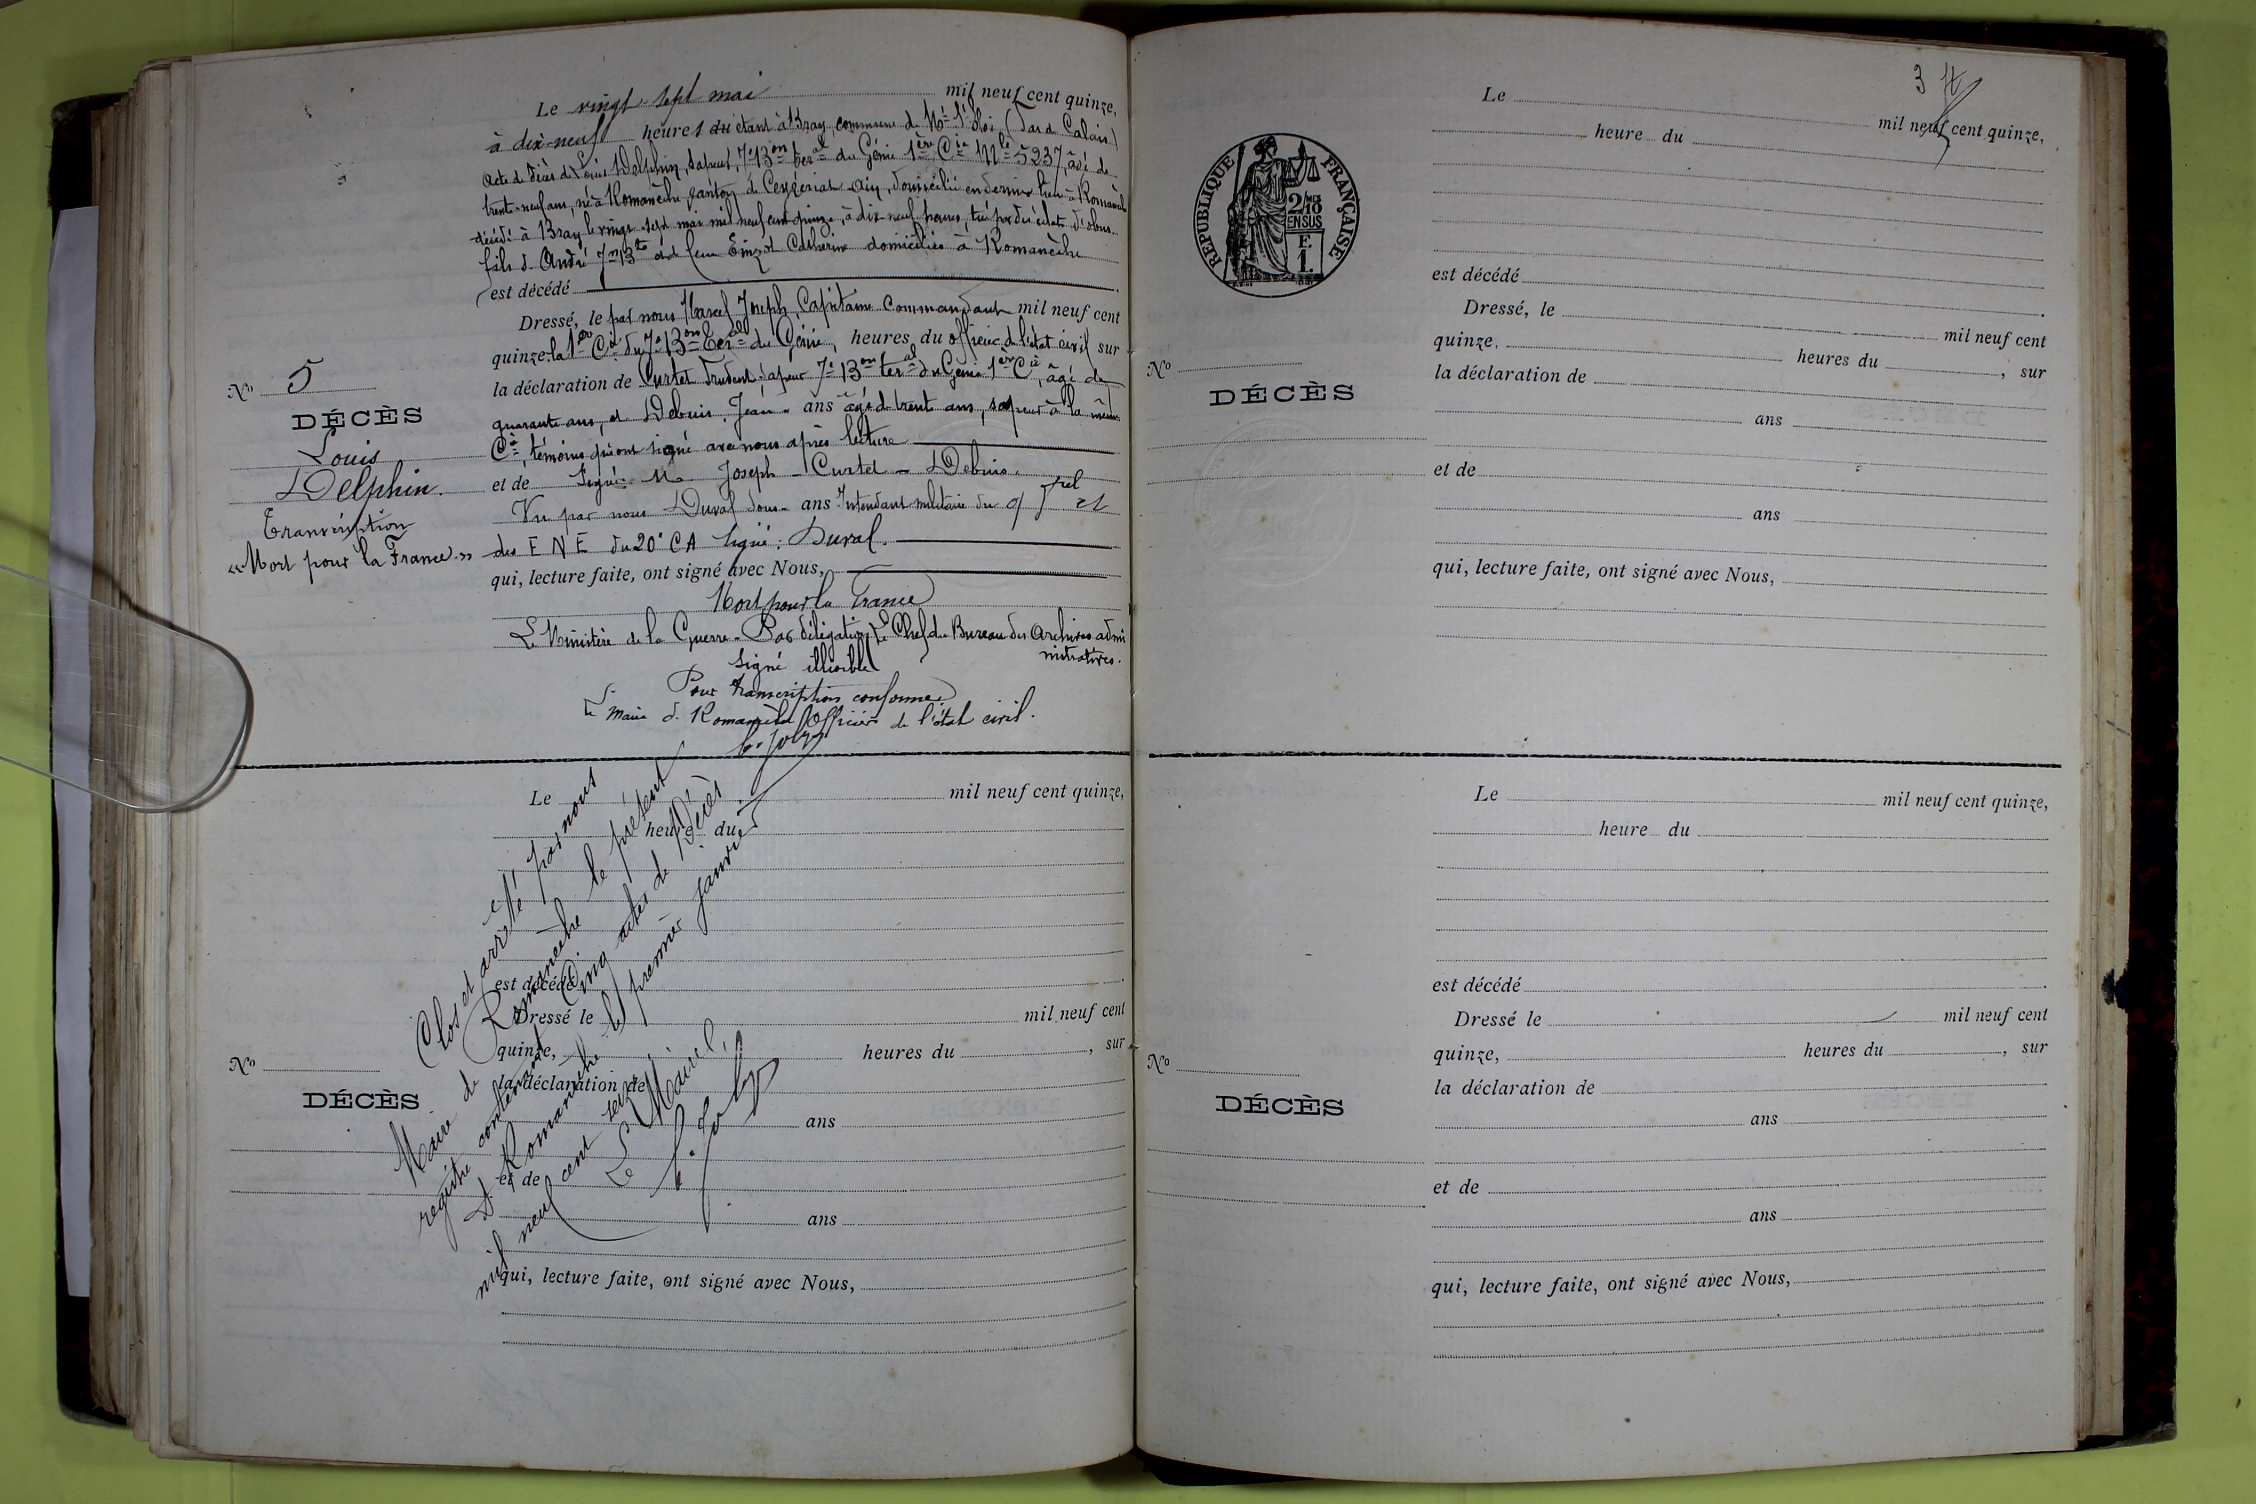 Le vingt-sept mai mil neuf cent quinze,
à dix-neuf heures du étant à Bray commune de Mt St Eloi (Pas de Calais)
Acte de décès de Louis Delphin, sapeur, 7e Bon teral du Génie 1ère Cie Mle 5237, âgé de
trente-neuf ans, né à Romanèche canton de Ceyzériat Ain, domicilié en dernier lieu à Romanèche
décédé à Bray le vingt-sept mai mil neuf cent quinze, à dix-neuf heures, tué par des éclats d'obus
fils de André Jn Bte et de feue Catherine domiciliés à Romanèche
est décédé
Dressé, le par nous Marcel Joseph, Capitaine commandant mil neuf cent
quinze, la 1ère Cie du 7e Bon Teral du Génie, heures du officier de l'état civil sur
la déclaration de Curtet Prudent sapeur 7e Bon teral du Génie 1ère Cie, âgé de
quarante ans, et Debuis Jean ans âgé de trente ans, sapeur à la même
Cie, témoins qui ont signé avec nous après lecture
et de Signé: M. Joseph - Curtet - Debuis.
Vu par nous Duval sous- ans Intendant militaire du
des E N E du 20e C A signé: Duval.
qui, lecture faite, ont signé avec Nous,
Mort pour la France
Le Ministère de la Guerre - Par délégation, Le Chef du Bureau des Archives admi
nistratives.
Signé illisible
Pour transcription conforme
Le Maire de Romanèche Officier de l'état civil.
Joly
No 5
DÉCÈS
Louis
Delphin.
Transcription
«Mort pour la France»
Le mil neuf cent quinze,
heure du
est décédé
Dressé le mil neuf cent
quinze, heures du , sur
la déclaration de
ans
et de
ans
qui, lecture faite, ont signé avec Nous,
No
DÉCÈS
Clos et arrêté par nous
Maire de Romanèche le présent
registre contenant Cinq actes de Décès
A Romanèche le premier janvier
mil neuf cent seize
Le Maire,
Joly
3
RÉPUBLIQUE FRANÇAISE
2/10 EN SUS
F.
1.
Le mil neuf cent quinze,
heure du
est décédé
Dressé, le mil neuf cent
quinze, heures du , sur
la déclaration de
ans
et de
ans
qui, lecture faite, ont signé avec Nous,
No
DÉCÈS
Le mil neuf cent quinze,
heure du
est décédé
Dressé le mil neuf cent
quinze, heures du , sur
la déclaration de
ans
et de
ans
qui, lecture faite, ont signé avec Nous,
No
DÉCÈS